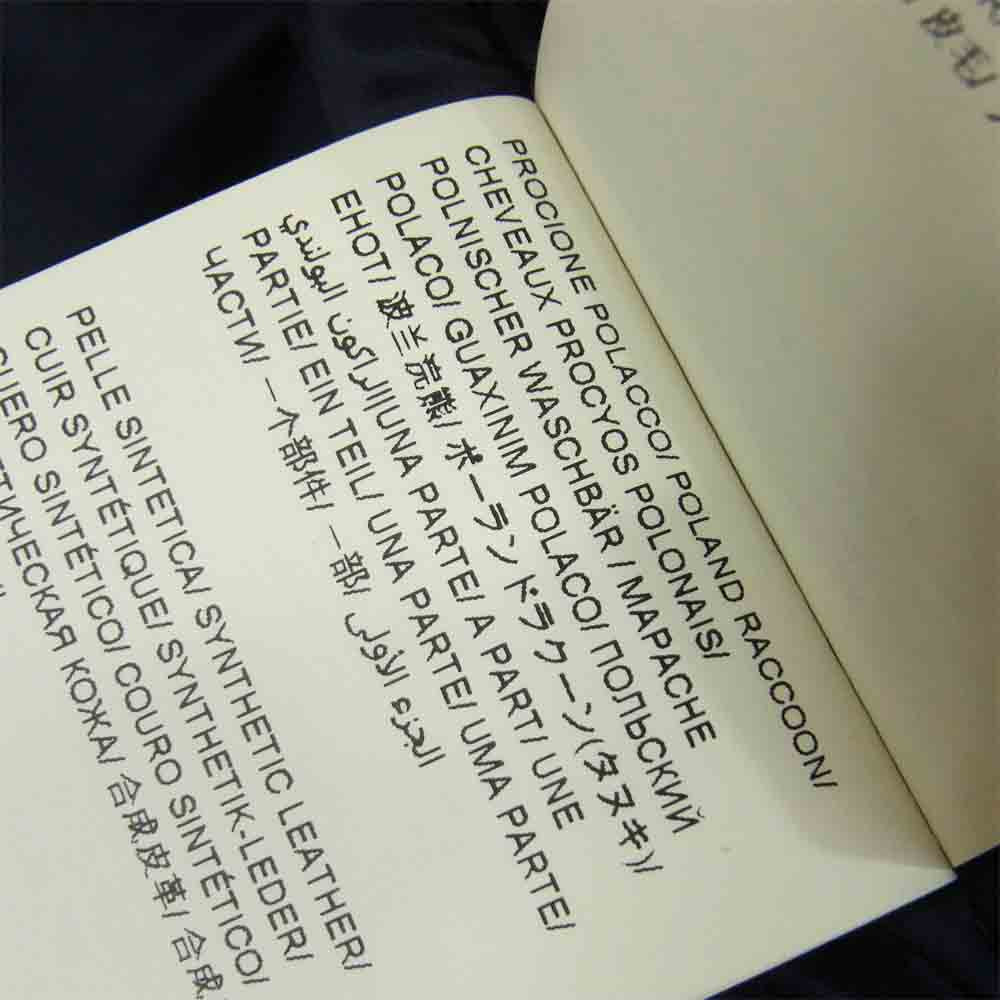 皮毛/
PROCIONE POLACCO/ POLAND RACCOON/
CHEVEAUX PROCYOS POLONAIS/
POLNISCHER WASCHBÄR / MAPACHE
POLACO/ GUAXINIM POLACO/ ПОЛЬСКИЙ
ЕНОТ/ 波兰浣熊/ ポーランドラクーン(タヌキ)/
الراكون البولندي/UNA PARTE/ A PART/ UNE
PARTIE/ EIN TEIL/ UNA PARTE/ UMA PARTE/
ЧАСТИ/ 一个部件/ 一部/ الجزء الأولى
PELLE SINTETICA/ SYNTHETIC LEATHER/
CUIR SYNTÉTIQUE/ SYNTHETIK-LEDER/
CUERO SINTÉTICO/ COURO SINTÉTICO/
КОЖА/ 合成皮革/ 合成